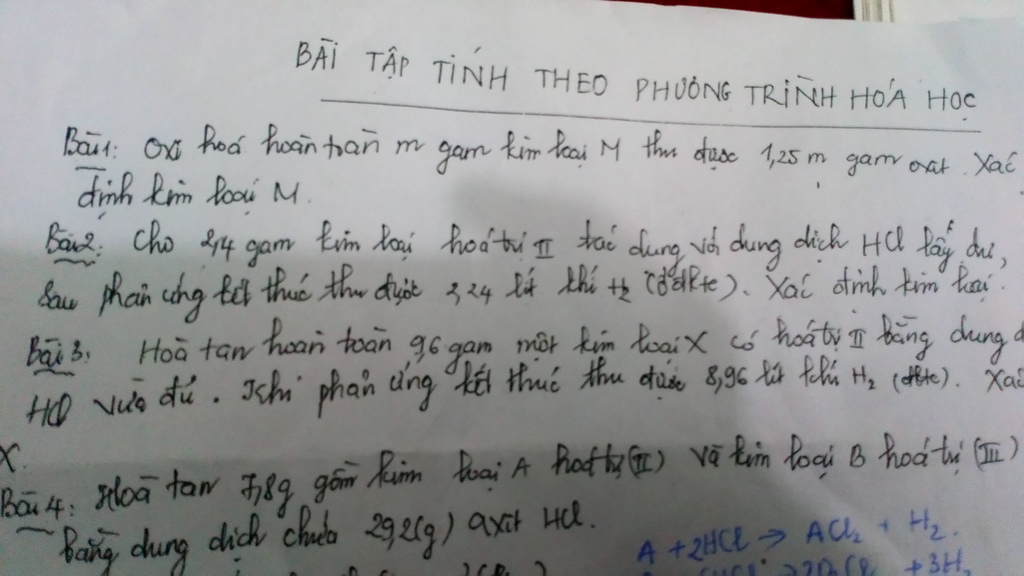 BÀI TẬP TÍNH THEO PHƯƠNG TRÌNH HÓA HỌC
Bài 1: Oxi hoá hoàn toàn m gam kim loại M thu được 1,25 m gam oxit. Xác
định kim loại M.
Bài 2: Cho 2,4 gam kim loại hoá trị II tác dụng với dung dịch HCl lấy dư,
sau phản ứng kết thúc thu được 2,24 lít khí H2 (ở đktc). Xác định kim loại.
Bài 3: Hoà tan hoàn toàn 9,6 gam một kim loại X có hoá trị II bằng dung d
HCl vừa đủ. Khi phản ứng kết thúc thu được 8,96 lít khí H2 (đktc). Xác
X.
Bài 4: Hoà tan 7,8g gồm kim loại A hoá trị (II) và kim loại B hoá trị (III)
bằng dung dịch chứa 29,2(g) axit HCl.
A + 2HCl → ACl2 + H2.
+ 3H2